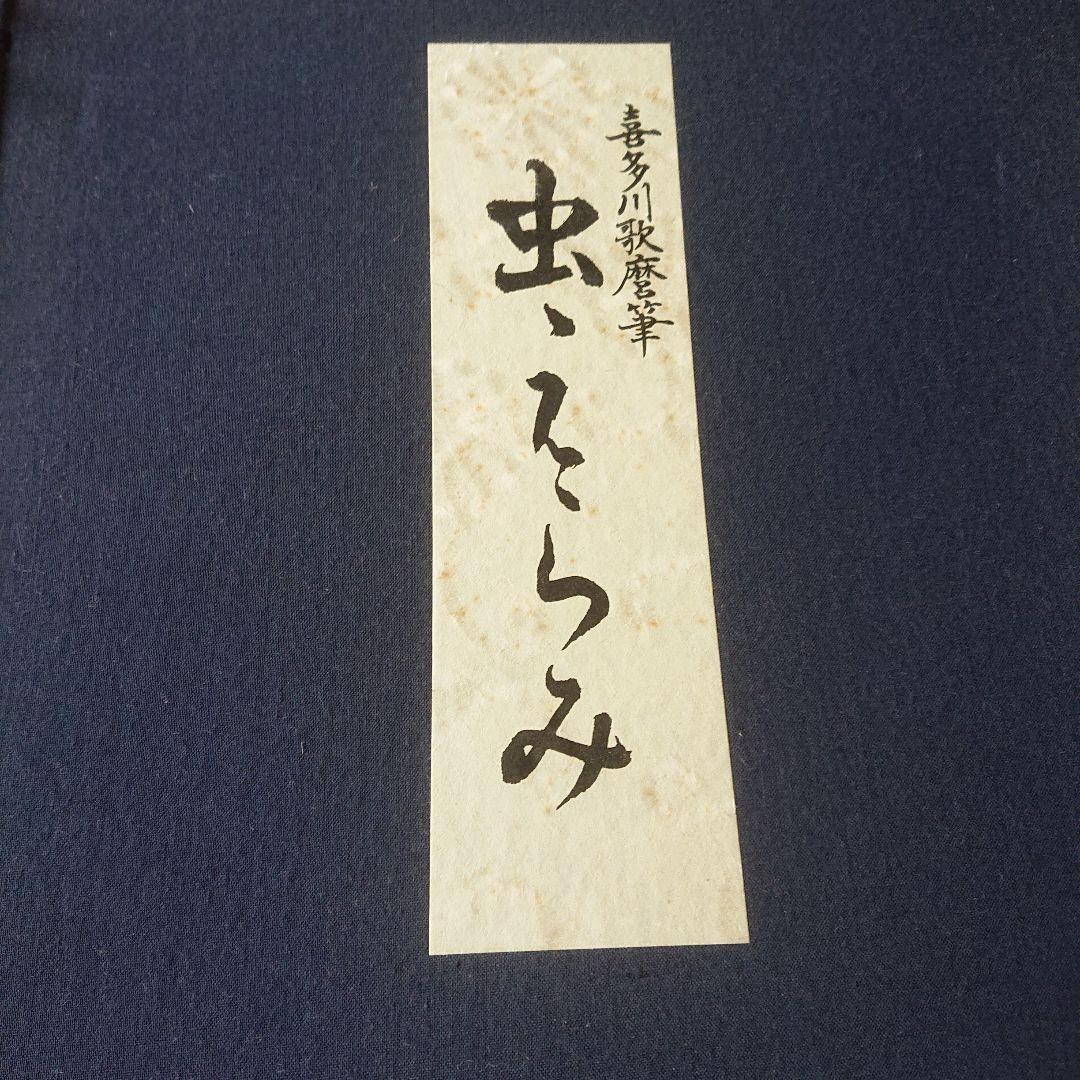 喜多川歌麿筆
虫、えらみ